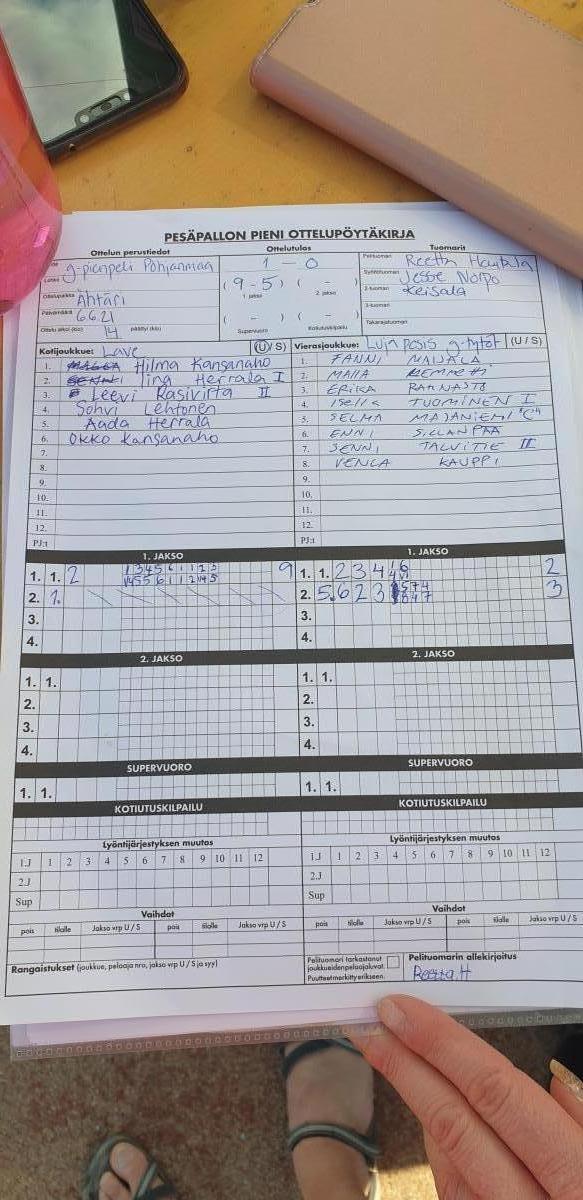 PESÄPALLON PIENI OTTELUPÖYTÄKIRJA
Ottelun perustiedot Ottelutulos Tuomarit
g-pienpeli Pohjanmaa
1 - 0
Pelituomari Reetta
(9-5) ( - )
1. jakso 2. jakso
Syöttötuomari Jesse Norpo
Ottelupaikka Ähtäri
2-tuoman Keisala
Päivämäärä 6621
( - ) ( - )
3-tuomari
Ottelu alkoi (klo) 14 päättyi (klo)
Supervuoro Kotiutuskilpailu
Takarajatuomari
Kotijoukkue: Lave (U/S)
1. Hilma Kansanaho
2. Iina Herrala I
3. Leevi Rasivirta II
4. Sohvi Lehtonen
5. Aada Herrala
6. Okko Kansanaho
7.
8.
9.
10.
11.
12.
PJ:t
Vierasjoukkue: Lujn pesis g-tytöt (U/S)
1. FANNI MAIJALA
2. MAIJA
3. ERIKA RANNASTO
4. ISELLA TUOMINEN I
5. SELMA MAJANIEMI "C"
6. ENNI SILLANPÄÄ
7. SENNI TALVITIE II
8. VENLA KAUPPI
9.
10.
11.
12.
PJ:t
1. JAKSO 1. JAKSO
1. 1. 2 9 1. 1. 2 3 4 2
2. 1. 2. 5. 6 2 3 3
3. 3.
4. 4.
2. JAKSO 2. JAKSO
1. 1. 1. 1.
2. 2.
3. 3.
4. 4.
SUPERVUORO SUPERVUORO
1. 1. 1. 1.
KOTIUTUSKILPAILU KOTIUTUSKILPAILU
Lyöntijärjestyksen muutos Lyöntijärjestyksen muutos
1.J 1 2 3 4 5 6 7 8 9 10 11 12 1.J 1 2 3 4 5 6 7 8 9 10 11 12
2.J 2.J
Sup Sup
Vaihdot Vaihdot
pois tilalle Jakso vrp U / S pois tilalle Jakso vrp U / S pois tilalle Jakso vrp U / S pois tilalle Jakso vrp U / S
Rangaistukset (joukkue, pelaaja nro, jakso vrp U / S ja syy)
Pelituomari tarkastanut
joukkueiden pelaajaluvat.
Puutteet merkitty erikseen.
Pelituomarin allekirjoitus
Reetta.H